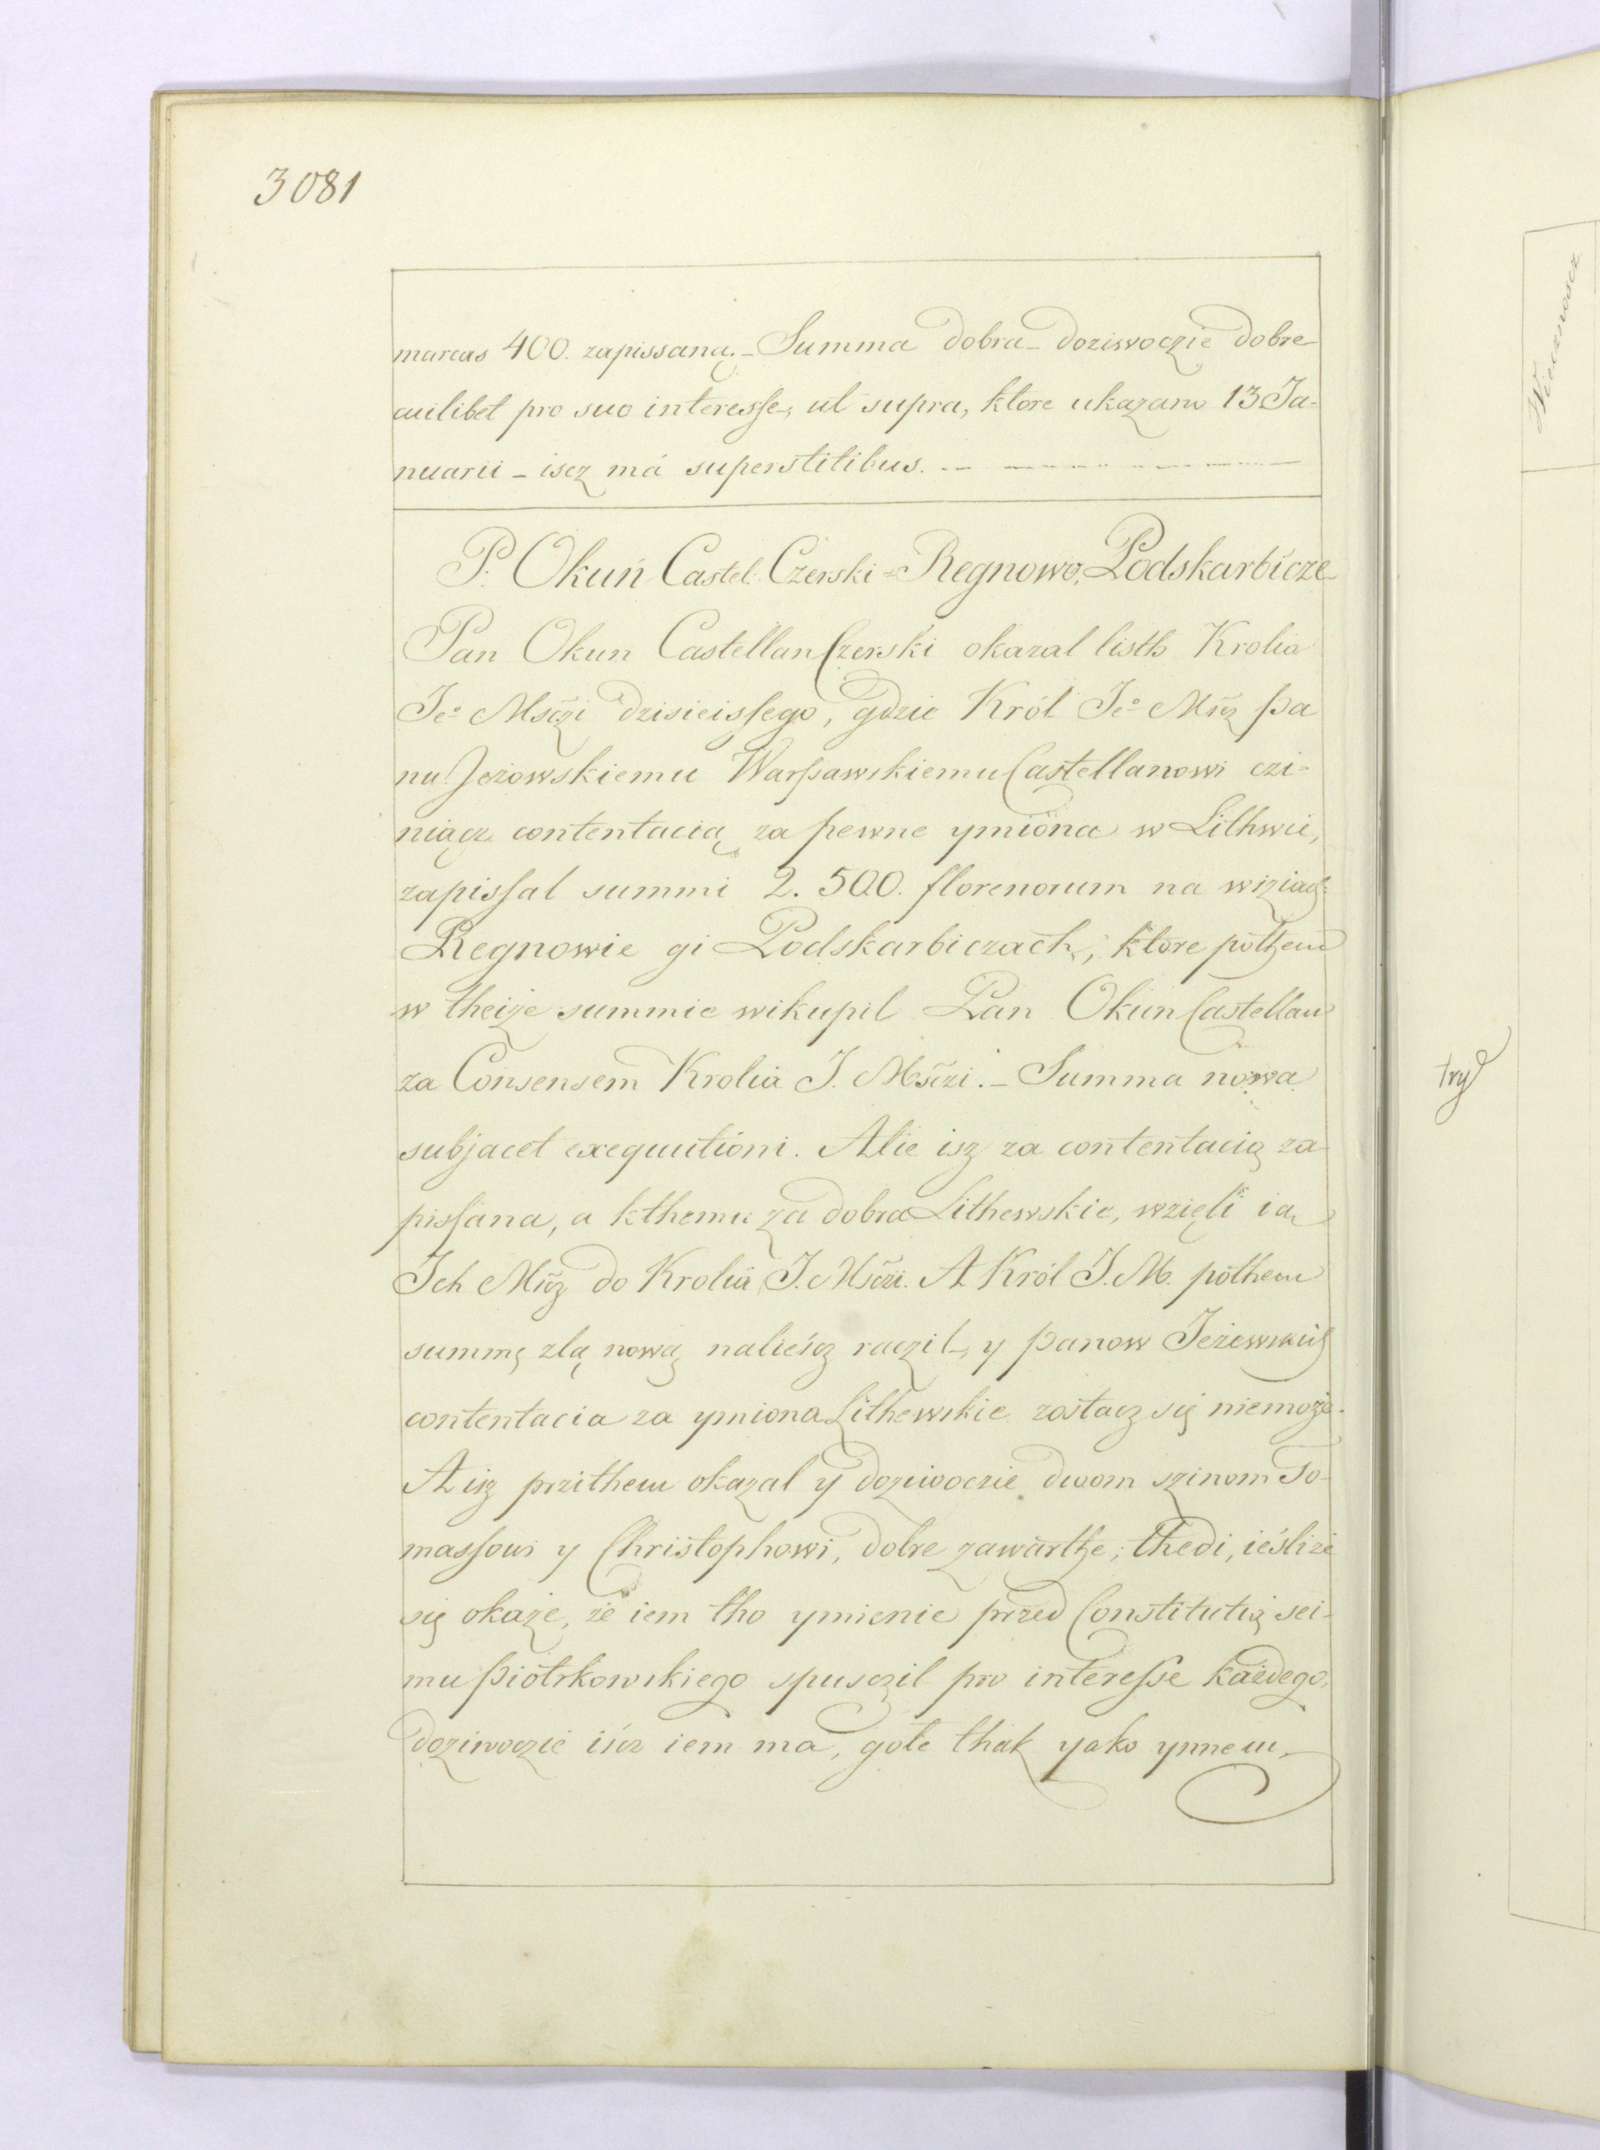 3081
marcas 400. zapissaną. – Summa dobra – doziwoczie dobre
cuilibet pro suo interesse, ut supra, ktore ukazano 13 Ja-
nuarii – iscz má superstitibus.
P. Okuń Castel: Czerski = Regnowo, Podskarbicze
Pan Okun Castellan Czerski okazal listh Krolia
Jeº Msczi dzisieissego, gdzie Król Jeº Mscz pa
nu Jeżowskiemu Warszawskiemu Castellanowi czi-
niącz contentacią za pewne ymióna w Lithwie,
zapissal summi 2. 500. florenorum na wsziach
Regnowie gi Podskarbiczach, ktore pothem
w theize summie wikupil Pan Okun Castellan
za Consensem Krolia J. Msczi. – Summa nowa
subjacet exequutioni. Alie isz za contentacią za
pissana, a kthemu za dobra Lithewskie, wzięli ią
Ich Mscz do Krolia J. Msczi. A Król J. M. pothem
summę zlą nową nalieścz raczil, y panow Jeżewskich
contentacia za ymiona Lithewskie zostacz się niemoże.
A isz przithem okazal y doziwoczie dwom szinom To-
massowi y Christophowi, dobre zawarthe, thedi, ieślize
się okaże, że iem tho ymienie przed Constitutią sei-
mu piotrkowskiego spusczil pro interesse każdego,
doziwoczie iścz iem ma, gole thak yako ynnem,
Wiecznoscz
try